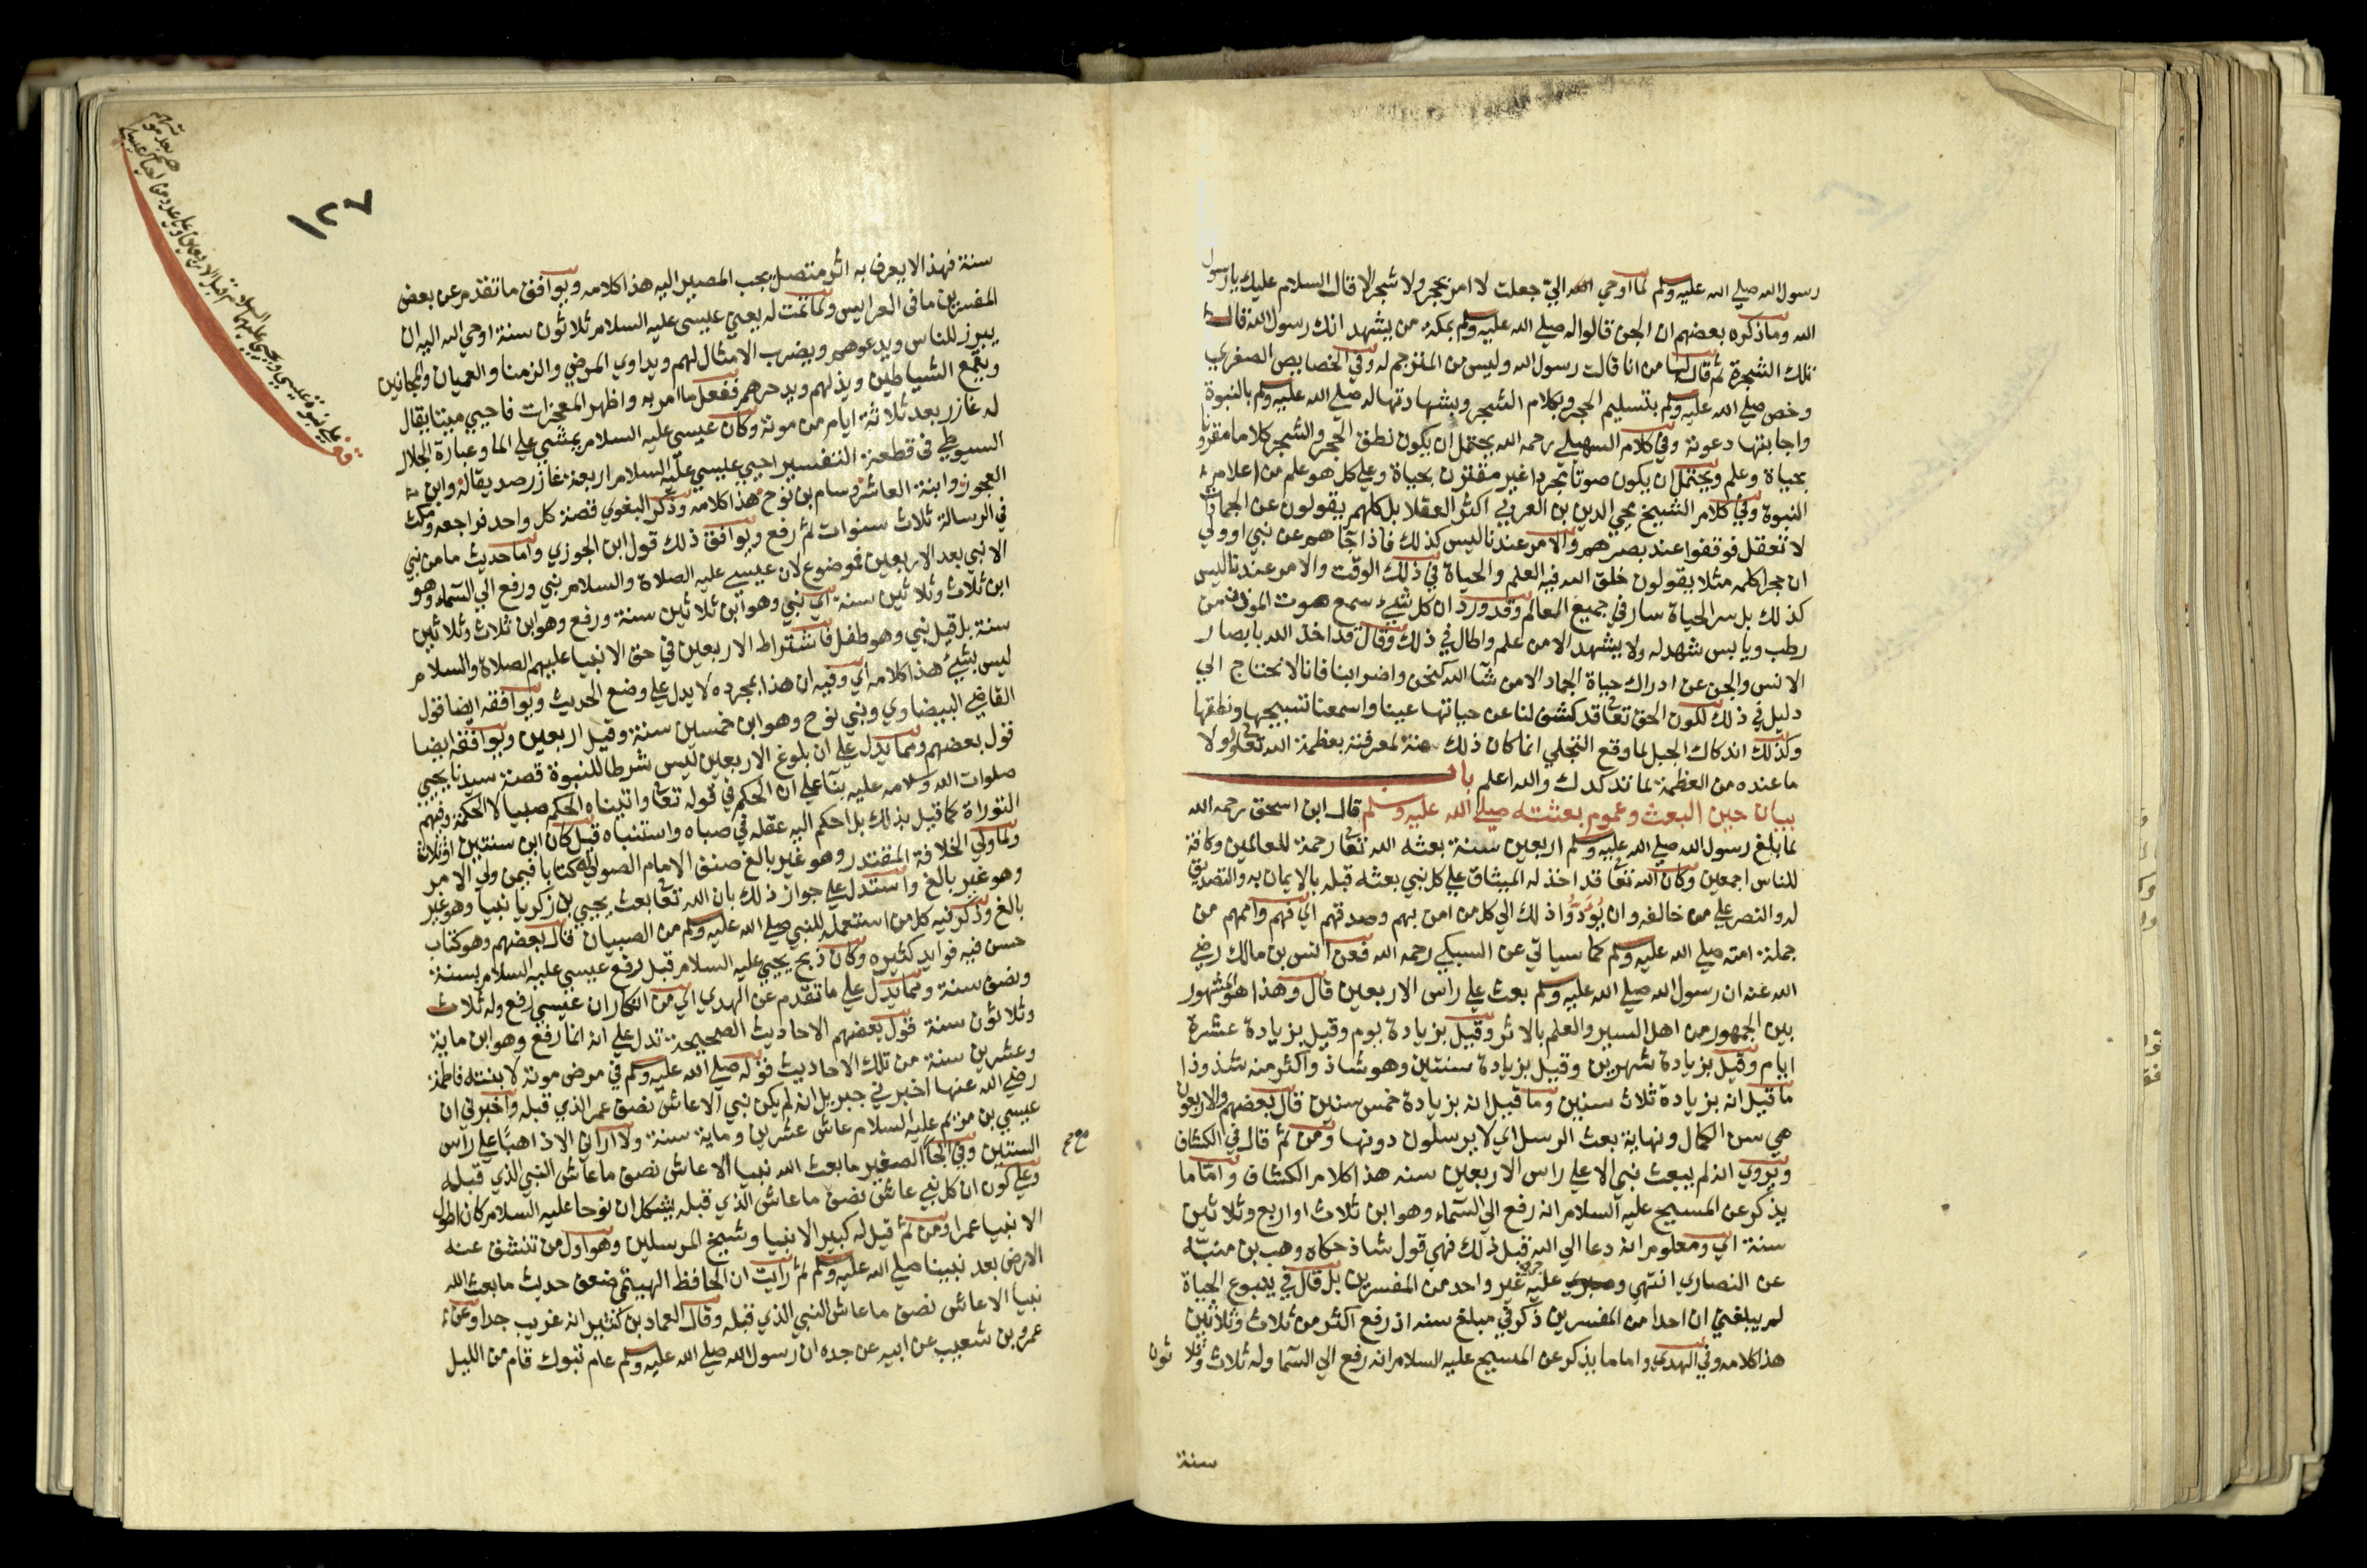 رسول الله صلي الله عليه وسلم لما اوحي الله اليّ جعلت لا امر بحجر ولا شجر الا قال السلام عليك يا رسول
الله وما ذكره بعضهم ان الجن قالوا له صلي الله عليه وسلم بمكة من يشهد انك رسول الله قال
تلك الشجرة ثم قال لها من انا قالت رسول الله وليس من المترجم له وفي الخصايص الصغري
وخص صلي الله عليه وسلم بتسليم الحجر وبكلام الشجر وبشهادتها له صلي الله عليه وسلم بالنبوة
واجابتها دعوته وفي كلام السهيلي رحمه الله يحتمل ان يكون نطق الحجر والشجر كلاما مقرونا
بحياة وعلم ويحتمل ان يكون صوتا مجردا غير مقترن بحياة وعلي كل هو علم من اعلام
النبوة وفي كلام الشيخ محيي الدين بن العربي اكثر العقلا بل كلهم يقولون عن الجمادات
لا تعقل فوقفوا عند بصرهم والامر عندنا ليس كذلك فاذا جآهم عن نبي او ولي
ان حجرا كلمه مثلا يقولون خلق الله فيه العلم والحياة في ذلك الوقت والامر عندنا ليس
كذلك بل سر الحياة سار في جميع العالم وقد ورد ان كل شيء سمع صوت الموذن من
رطب ويابس شهد له ولا يشهد الا من علم واطال في ذلك وقال قد اخذ الله بابصار
الانس والجن عن ادراك حياة الجماد الا من شآ الله كنحن واضرابنا فانا لا نحتاج الي
دليل في ذلك لكون الحق تعالى قد كشف لنا عن حياتها عينا واسمعنا تسبيحها ونطقها
وكذلك اندكاك الجبل لما وقع التجلي انما كان ذلك منه لمعرفته بعظمة الله تعالى ولولا
ما عنده من العظمة لما تدكدك والله اعلم باب
بيان حين البعث وعموم بعثته صلي الله عليه وسلم قال ابن اسحق رحمه الله
لما بلغ رسول الله صلي الله عليه وسلم اربعين سنة بعثه الله تعالى رحمة للعالمين وكافة
للناس اجمعين وكان الله تعالى قد اخذ له الميثاق علي كل نبي بعثه قبله بالايمان به والتصديق
له والنصر علي من خالفه وان يُؤَدُّوا ذلك الي كل من امن بهم وصدقهم اي فهم واممهم من
جملة امته صلي الله عليه وسلم كما سياتي عن السبكي رحمه الله فعن انس بن مالك رضي
الله عنه ان رسول الله صلي الله عليه وسلم بعث علي راس الاربعين قال وهذا هو المشهور
بين الجمهور من اهل السير والعلم بالاثر وقيل بزيادة يوم وقيل بزيادة عشرة
ايام وقيل بزيادة شهرين وقيل بزيادة سنتين وهو شاذ واكثر منه شذوذا
ما قيل انه بزيادة ثلاث سنين وما قيل انه بزيادة خمس سنين قال بعضهم والاربعون
هي سن الكمال ونهاية بعث الرسل اي لا يرسلون دونها ومن ثم قال في الكشاف
ويروي انه لم يبعث نبي الا علي راس الاربعين سنه هذا كلام الكشاف وامّا ما
يذكر عن المسيح عليه السلام انه رفع الي السمآء وهو ابن ثلاث او اربع وثلاثين
سنة اي ومعلوم انه دعا الي الله قبل ذلك فهي قول شاذ حكاه وهب بن منبّه
عن النصاري انتهي وجري عليه غير واحد من المفسرين بل قال في ينبوع الحياة
لم يبلغني ان احدا من المفسرين ذكر في مبلغ سنه اذ رفع اكثر من ثلاث وثلاثين
هذا كلامه وفي الهدي واما ما يذكر عن المسيح عليه السلام انه رفع الي السمآ وله ثلاث وثلاثون
سنة
١٢٧
سنة فهذا لا يعرف به اثر متصل يجب المصير اليه هذا كلامه ويوافق ما تقدم عن بعض
المفسرين ما في العرايس ولما تمت له يعني عيسى عليه السلام ثلاثون سنة اوحي الله اليه ان
يبرز للناس ويدعوهم ويضرب الامثال لهم ويداوي المرضي والزمنا والعميان والمجانين
ويقمع الشياطين ويذلهم ويدحرهم ففعل ما امر به واظهر المعجزات فاحيي ميتا يقال
له عازر بعد ثلاثة ايام من موته وكان عيسي عليه السلام يمشي علي الما وعبارة الجلال
السيوطي في قطعة التفسير احيي عيسي عليه السلام اربعة عازر صديقا له وابن
العجوز وابنة العاشر وسام بن نوح هذا كلامه وذكر البغوي قصة كل واحد فراجعه ومكث
في الرسالة ثلاث سنوات ثم رفع ويوافق ذلك قول ابن الجوزي واما حديث ما من نبي
الا نبي بعد الاربعين فموضوع لان عيسي عليه الصلاة والسلام نبي ورفع الي السمآء وهو
ابن ثلاث وثلاثين سنة اي نبي وهو ابن ثلاثين سنة ورفع وهو ابن ثلاث وثلاثين
سنة بل قيل نبي وهو طفل فاشتراط الاربعين في حق الانبيا عليهم الصلاة والسلام
ليس بشيء هذا كلامه اي وفيه ان هذا بمجرده لا يدل علي وضع الحديث ويوافقه ايضا قول
القاضي البيضاوي ونبي نوح وهو ابن خمسين سنة وقيل اربعين ويوافقه ايضا
قول بعضهم ومما يدل علي ان بلوغ الاربعين ليس شرطا للنبوة قصة سيدنا يحيي
صلوات الله وسلامه عليه بنآ علي ان الحكم في قوله تعالى واتيناه الحكم صبيا لا الحكمة وفهم
التوراة كما قيل بذلك بل احكم اليه عقله في صباه واستنباه قيل كان ابن سنتين او ثلاث
ولما ولي الخلافة المقتدر وهو غير بالغ صنف الامام الصولي له كتابا فيمن ولي الامر
وهو غير بالغ واستدل علي جواز ذلك بان الله تعالى بعث يحيي بن زكريا نبيا وهو غير
بالغ وذكر فيه كل من استعمله النبي صلي الله عليه وسلم من الصبيان قال بعضهم وهو كتاب
حسن فيه فوايد كثيره وكان ذبح يحيي عليه السلام قبل رفع عيسي عليه السلام بسنة
ونصف سنة ومما يدل علي ما تقدم عن الهدي اي من انكار ان عيسي رفع وله ثلاث
وثلاثون سنة قول بعضهم الاحاديث الصحيحة تدل علي انه انما رفع وهو ابن ماية
وعشرين سنة من تلك الاحاديث قوله صلي الله عليه وسلم في مرض موته لابنته فاطمة
رضي الله عنها اخبرني جبريل انه لم يكن نبي الا عاش نصف عمر الذي قبله واخبرني ان
عيسي بن مريم عليه السلام عاش عشرين وماية سنة ولا اراني الا ذاهبا علي راس
الستين وفي الجامع الصغير ما بعث الله نبيا الا عاش نصف ما عاش النبي الذي قبله
وعلي كون ان كل نبي عاش نصف ما عاش الذي قبله يشكل ان نوحا عليه السلام كان اطول
الانبيا عمرا ومن ثم قيل له كبير الانبيا وشيخ المرسلين وهو اول من تنشق عنه
الارض بعد نبينا صلي الله عليه وسلم ثم رايت ان الحافظ الهيتمي ضعف حديث ما بعث الله
نبيا الا عاش نصف ما عاش النبي الذي قبله وقال العماد بن كثير انه غريب جدا وعن
عمرو بن شعيب عن ابيه عن جده ان رسول الله صلي الله عليه وسلم عام تبوك قام من الليل